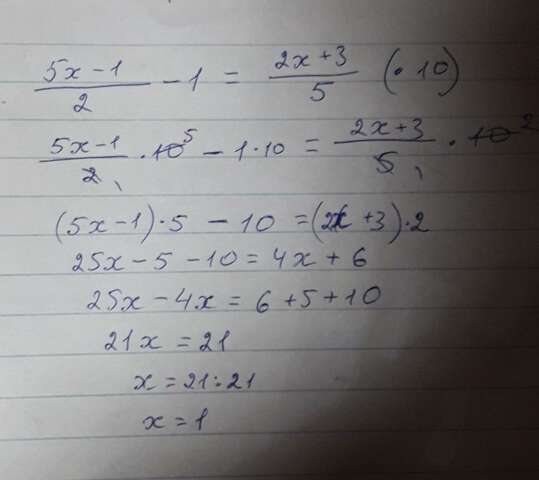 (5x-1)/2 - 1 = (2x+3)/5 (· 10)
(5x-1)/2 · 10 5 - 1·10 = (2x+3)/5 · 10 2
(5x-1)·5 - 10 = (2x+3)·2
25x - 5 - 10 = 4x + 6
25x - 4x = 6 + 5 + 10
21x = 21
x = 21:21
x = 1